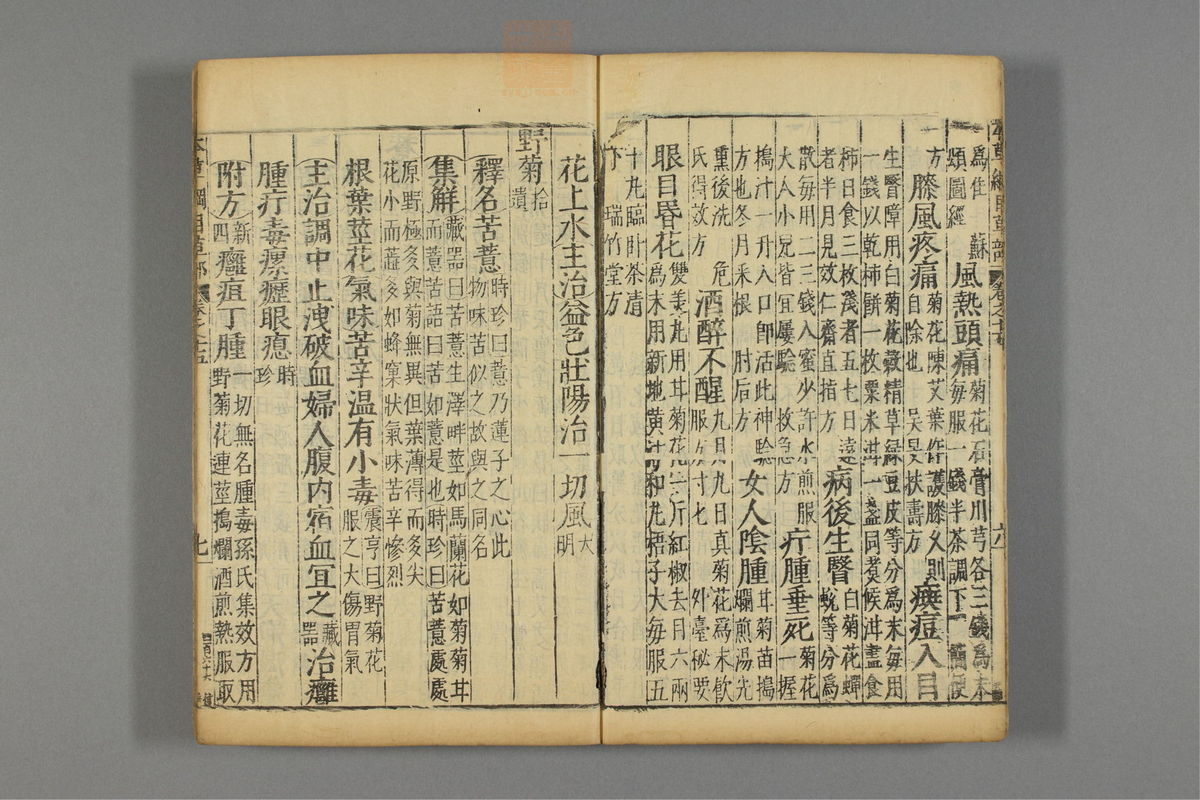 本草綱目草部 卷之十五 六
為準 蘇
頌圖經
風熱頭痛
菊花石膏川芎各三錢為末
每服一錢半茶調下 簡便
方
膝風疼痛
菊花陳艾葉作護膝久則
自除也 吳旻扶壽方
癍痘入目
生翳障用白菊花穀精草綠豆皮等分為末每用
一錢以乾柿餅一枚粟米泔一盞同煮候泔盡食
柿日食三枚淺者五七日遠
者半月見效仁齋直指方
病後生翳
白菊花蟬
蛻等分為
散每用二三錢入蜜少許水煎服
大人小兒皆宜屢驗 救急方
疔腫垂死
菊花
一握
搗汁一升入口即活此神驗
方也冬月采根 肘后方
女人陰腫
甘菊苗搗
爛煎湯先
熏後洗 危
氏得效方
酒醉不醒
九月九日真菊花為末飲
服方寸七 外臺秘要
眼目昏花
雙美丸用甘菊花一斤紅椒去目六兩
為末用新地黃汁和丸梧子大每服五
十丸臨卧茶清
下 瑞竹堂方
花上水主治益色壯陽治一切風大明
野菊拾遺
釋名苦薏
時珍曰薏乃蓮子之心此
物味苦似之故與之同名
集解
藏器曰苦薏生澤畔莖如馬蘭花如菊菊甘
而薏苦語曰苦如薏是也時珍曰苦薏處處
原野極多與菊無異但葉薄得而多尖
花小而蕋多如蜂窠狀氣味苦辛慘烈
根葉莖花氣味苦辛温有小毒
震亨曰野菊花
服之大傷胃氣
主治調中止洩破血婦人腹内宿血宜之藏器治癰
腫疔毒瘰癧眼瘜時珍
附方新四癰疽丁腫
一切無名腫毒孫氏集效方用
野菊花連莖搗爛酒煎熱服取
本草綱目草部 卷之十五 七